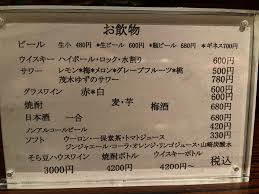 お飲物
ビール 生小 480円 *生ビール 600円 *瓶ビール 680円 *ギネス700円
ウイスキー ハイボール・ロック・水割り 600円
サワー レモン*梅*メロン*グレープフルーツ*桃 500円
茂木ゆずのサワー 780円
グラスワイン 赤*白 600円
焼酎 麦・芋 梅酒 680円
日本酒 一合 680円
ノンアルコールビール 420円
ソフト ウーロン・一保堂茶・トマトジュース 330円
ジンジャエール・コーラ・オレンジ・リンゴジュース・山崎炭酸水
そら豆ハウスワイン 焼酎ボトル ウイスキーボトル 税込
3000円 4200円 4200円